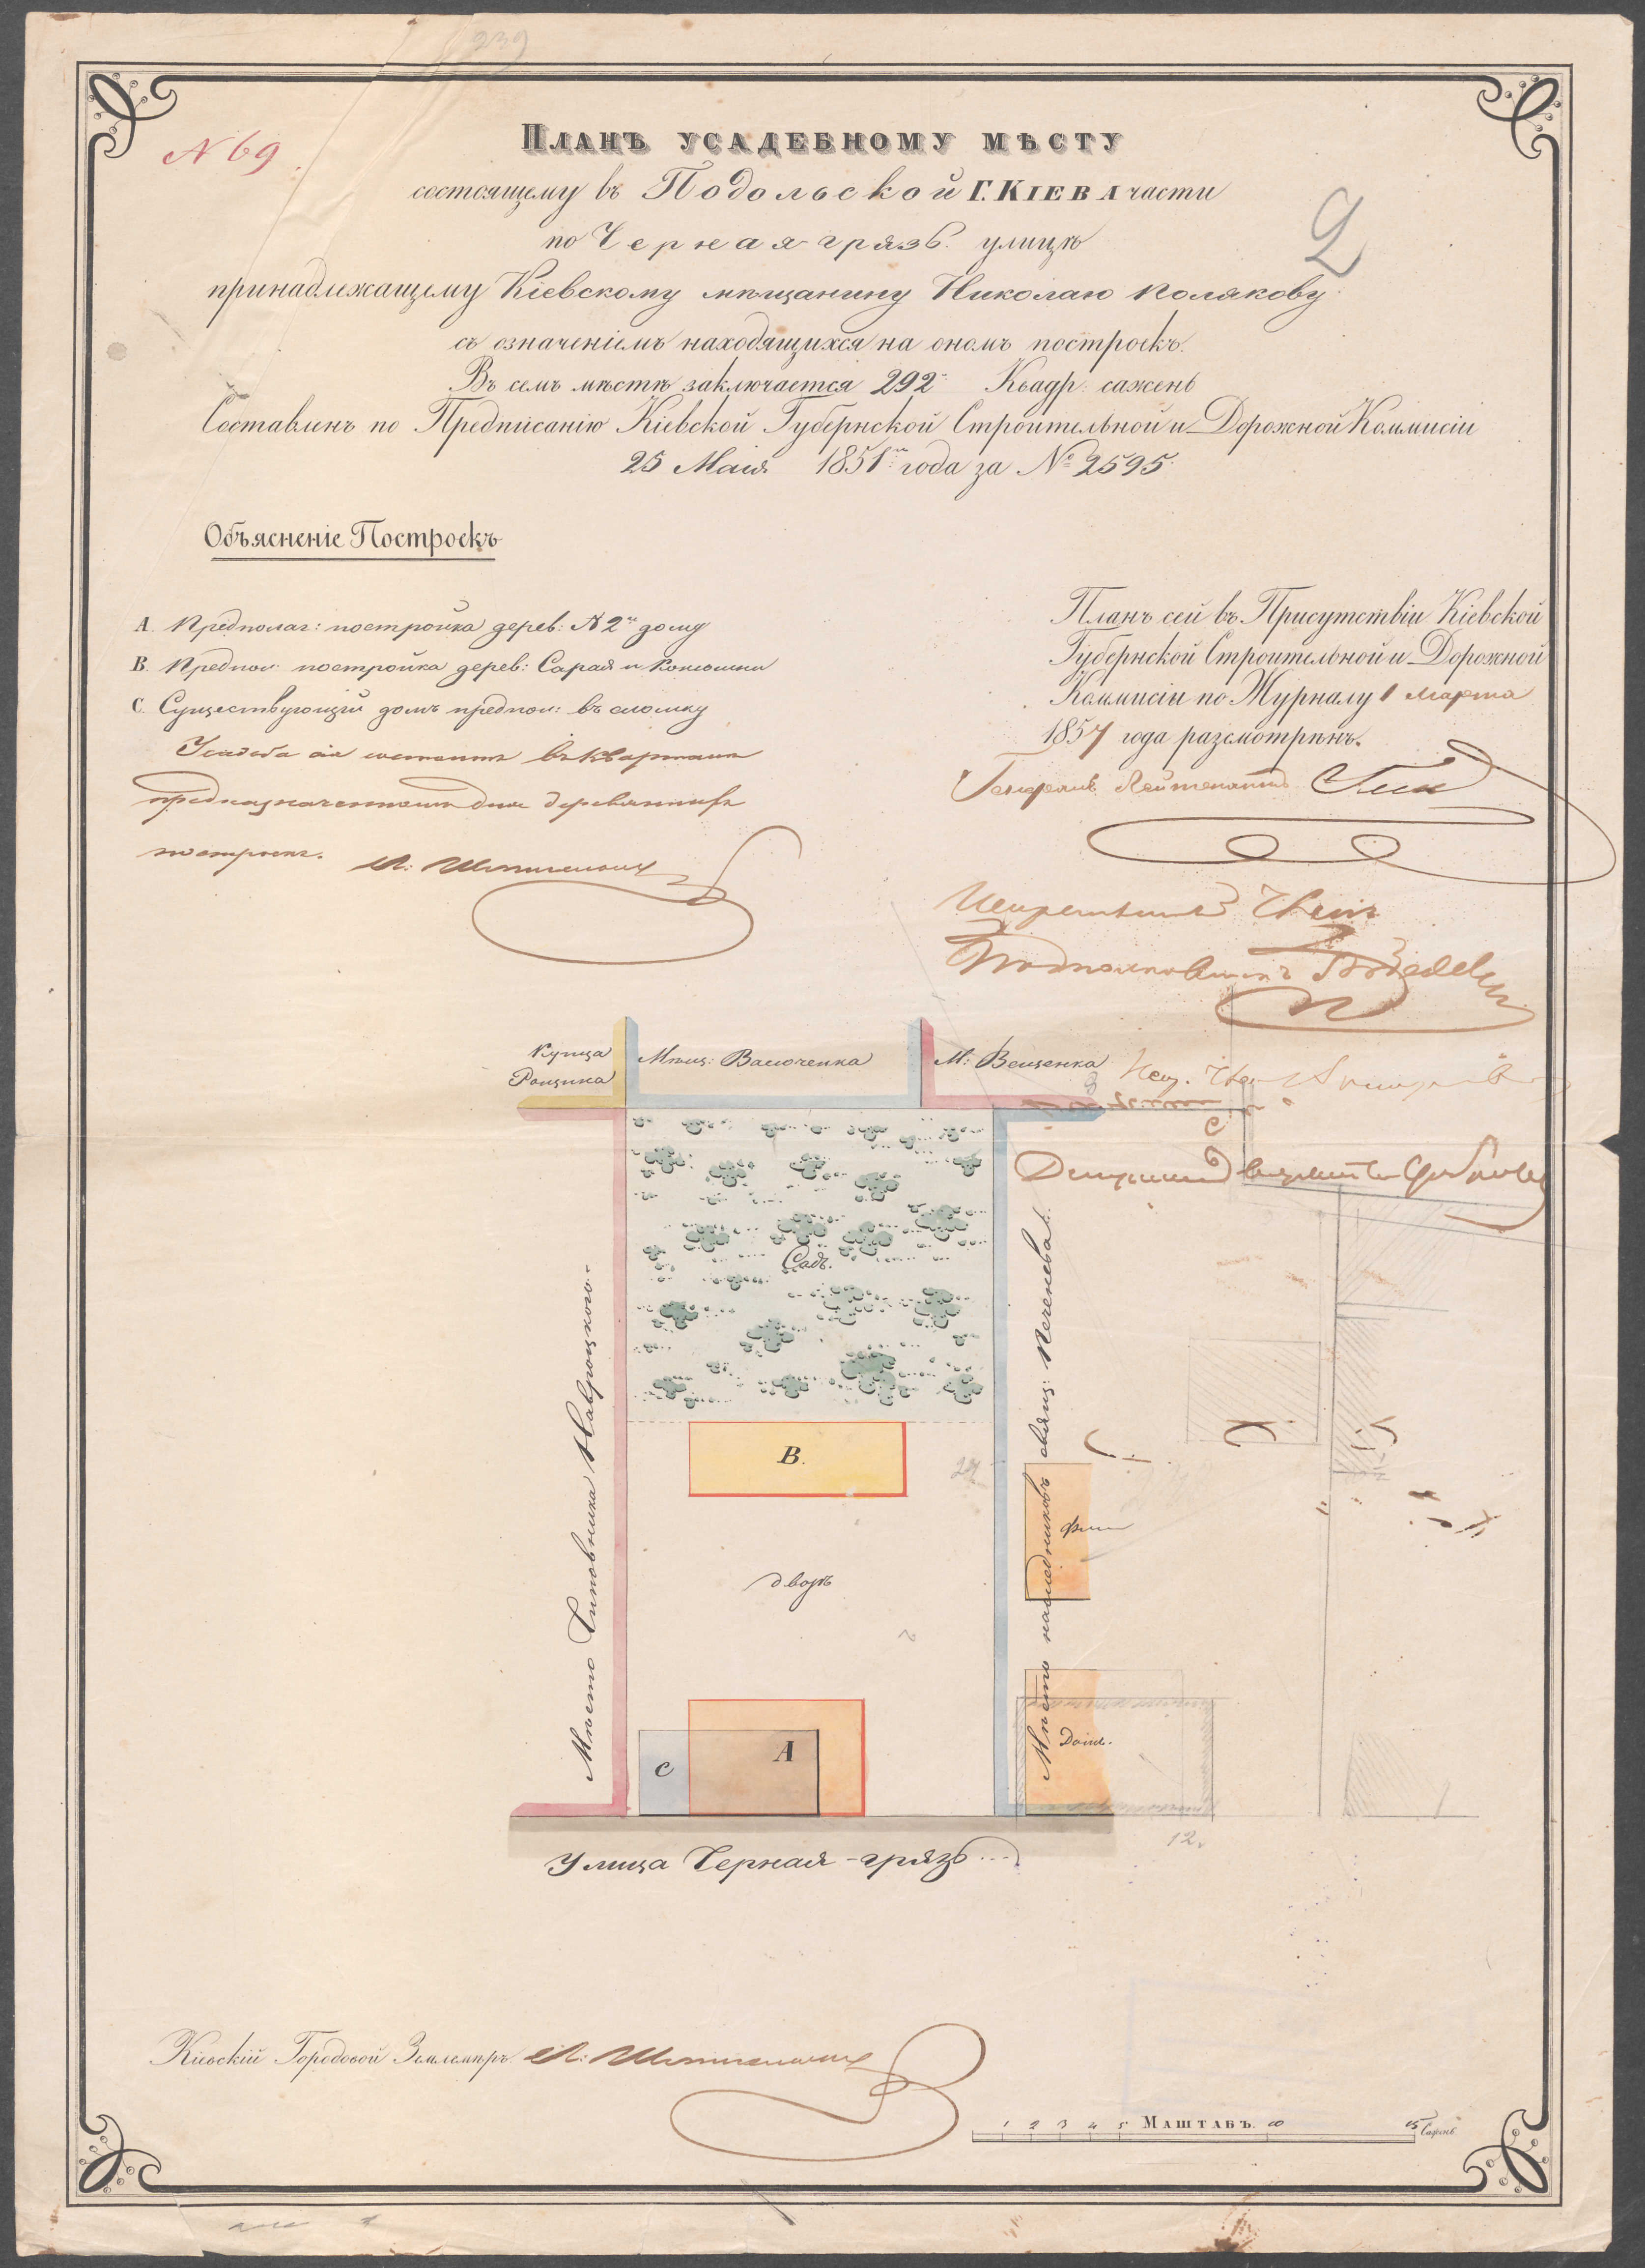 239
N 69
2
Планъ усадебному мѣсту
состоящему въ Подольской Г. Кіева части
по Черная-грязь улицѣ
принадлежащему Кіевскому мѣщанину Николаю Полякову
съ означеніемъ находящихся на ономъ построекъ.
Въ семъ мѣстѣ заключается 292 Квадр: сажень
Составленъ по Предписанію Кіевской Губернской Строительной и Дорожной Коммисіи
25 Маія 1851го года за № 2595.
Объясненіе Построекъ
А. Предполаг: постройка дерев: № 2го дому
В. Предпол: постройка дерев: Сарая и Конюшни
С. Существующій домъ предпол: въ сломку
Усадьба сія состоитъ въ кварталѣ
предназначенномъ для деревянныхъ
построекъ.
Планъ сей въ Присутствіи Кіевской
Губернской Строительной и Дорожной
Коммисіи по Журналу 1 марта
1857 года разсмотрѣнъ.
Генералъ Лейтенантъ
Подполковникъ
Купца
Рощина
Мѣщ: Васюченка
М: Вещенка
Садъ.
Мѣсто Чиновника Навроцкого
Мѣсто наслѣдниковъ свящ: Печенева
В.
дворъ
А
С
Домъ.
12
Улица Черная-грязь
Кіевскій Городовой Землемѣръ
1 2 3 4 5 Маштабъ. 10 15 Сажень